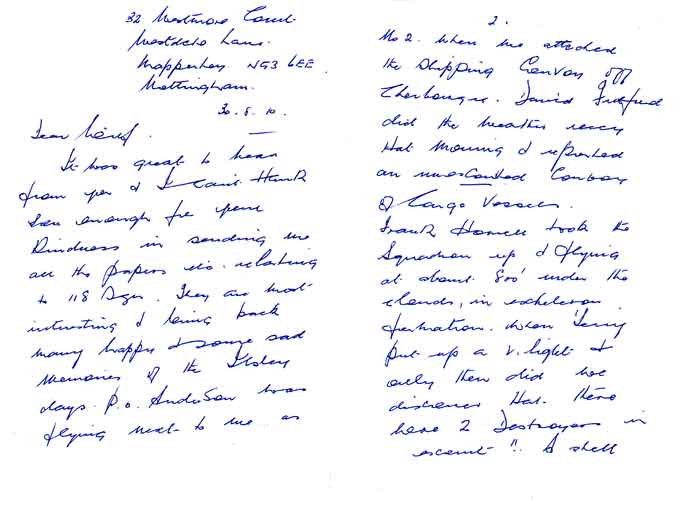 32 Westmore Court
Westdale Lane.
Mapperley NG3 6EE
Nottingham.
30.8.10.
Dear
It was great to hear
from you & I can't thank
you enough for your
kindness in sending me
all the papers etc. relating
to 118 Sqn. They are most
interesting & bring back
many happy & some sad
memories of the Ibsley
days. P.O. Anderson was
flying next to me as
2.
No 2. When we attacked
the Shipping Convoy off
Cherbourg. David Fulford
did the weather recce
that morning & reported
an unescorted Convoy
of Cargo Vessels.
Frank Howell took the
Squadron up & flying
at about 800' under the
clouds, in echelon
formation. When Jerry
put up a V. light &
only then did we
discover that there
were 2 Destroyers in
escort"! A shell